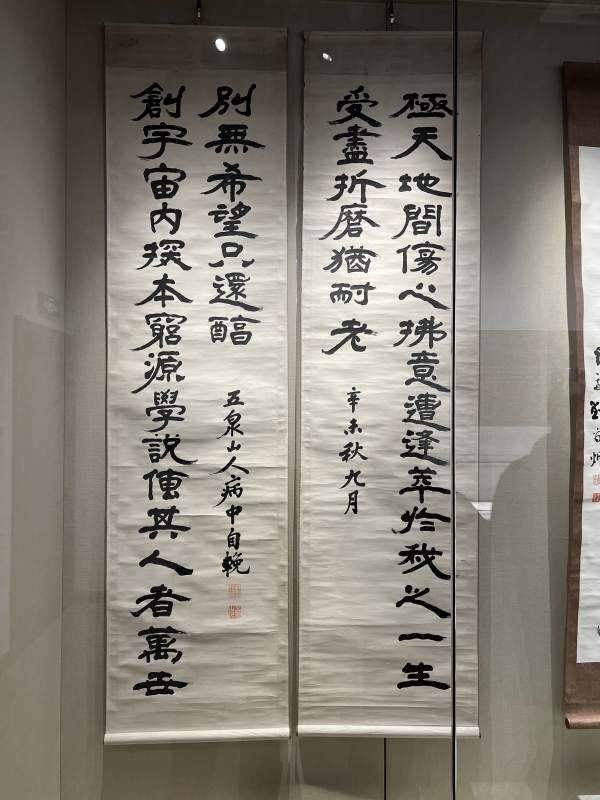 極天地間傷心拂意遭逢萃於我之一生
受盡折磨猶耐老
辛未秋九月
創宇宙內探本窮源學說傳其人者萬世
別無希望只還醕
五泉山人病中自輓